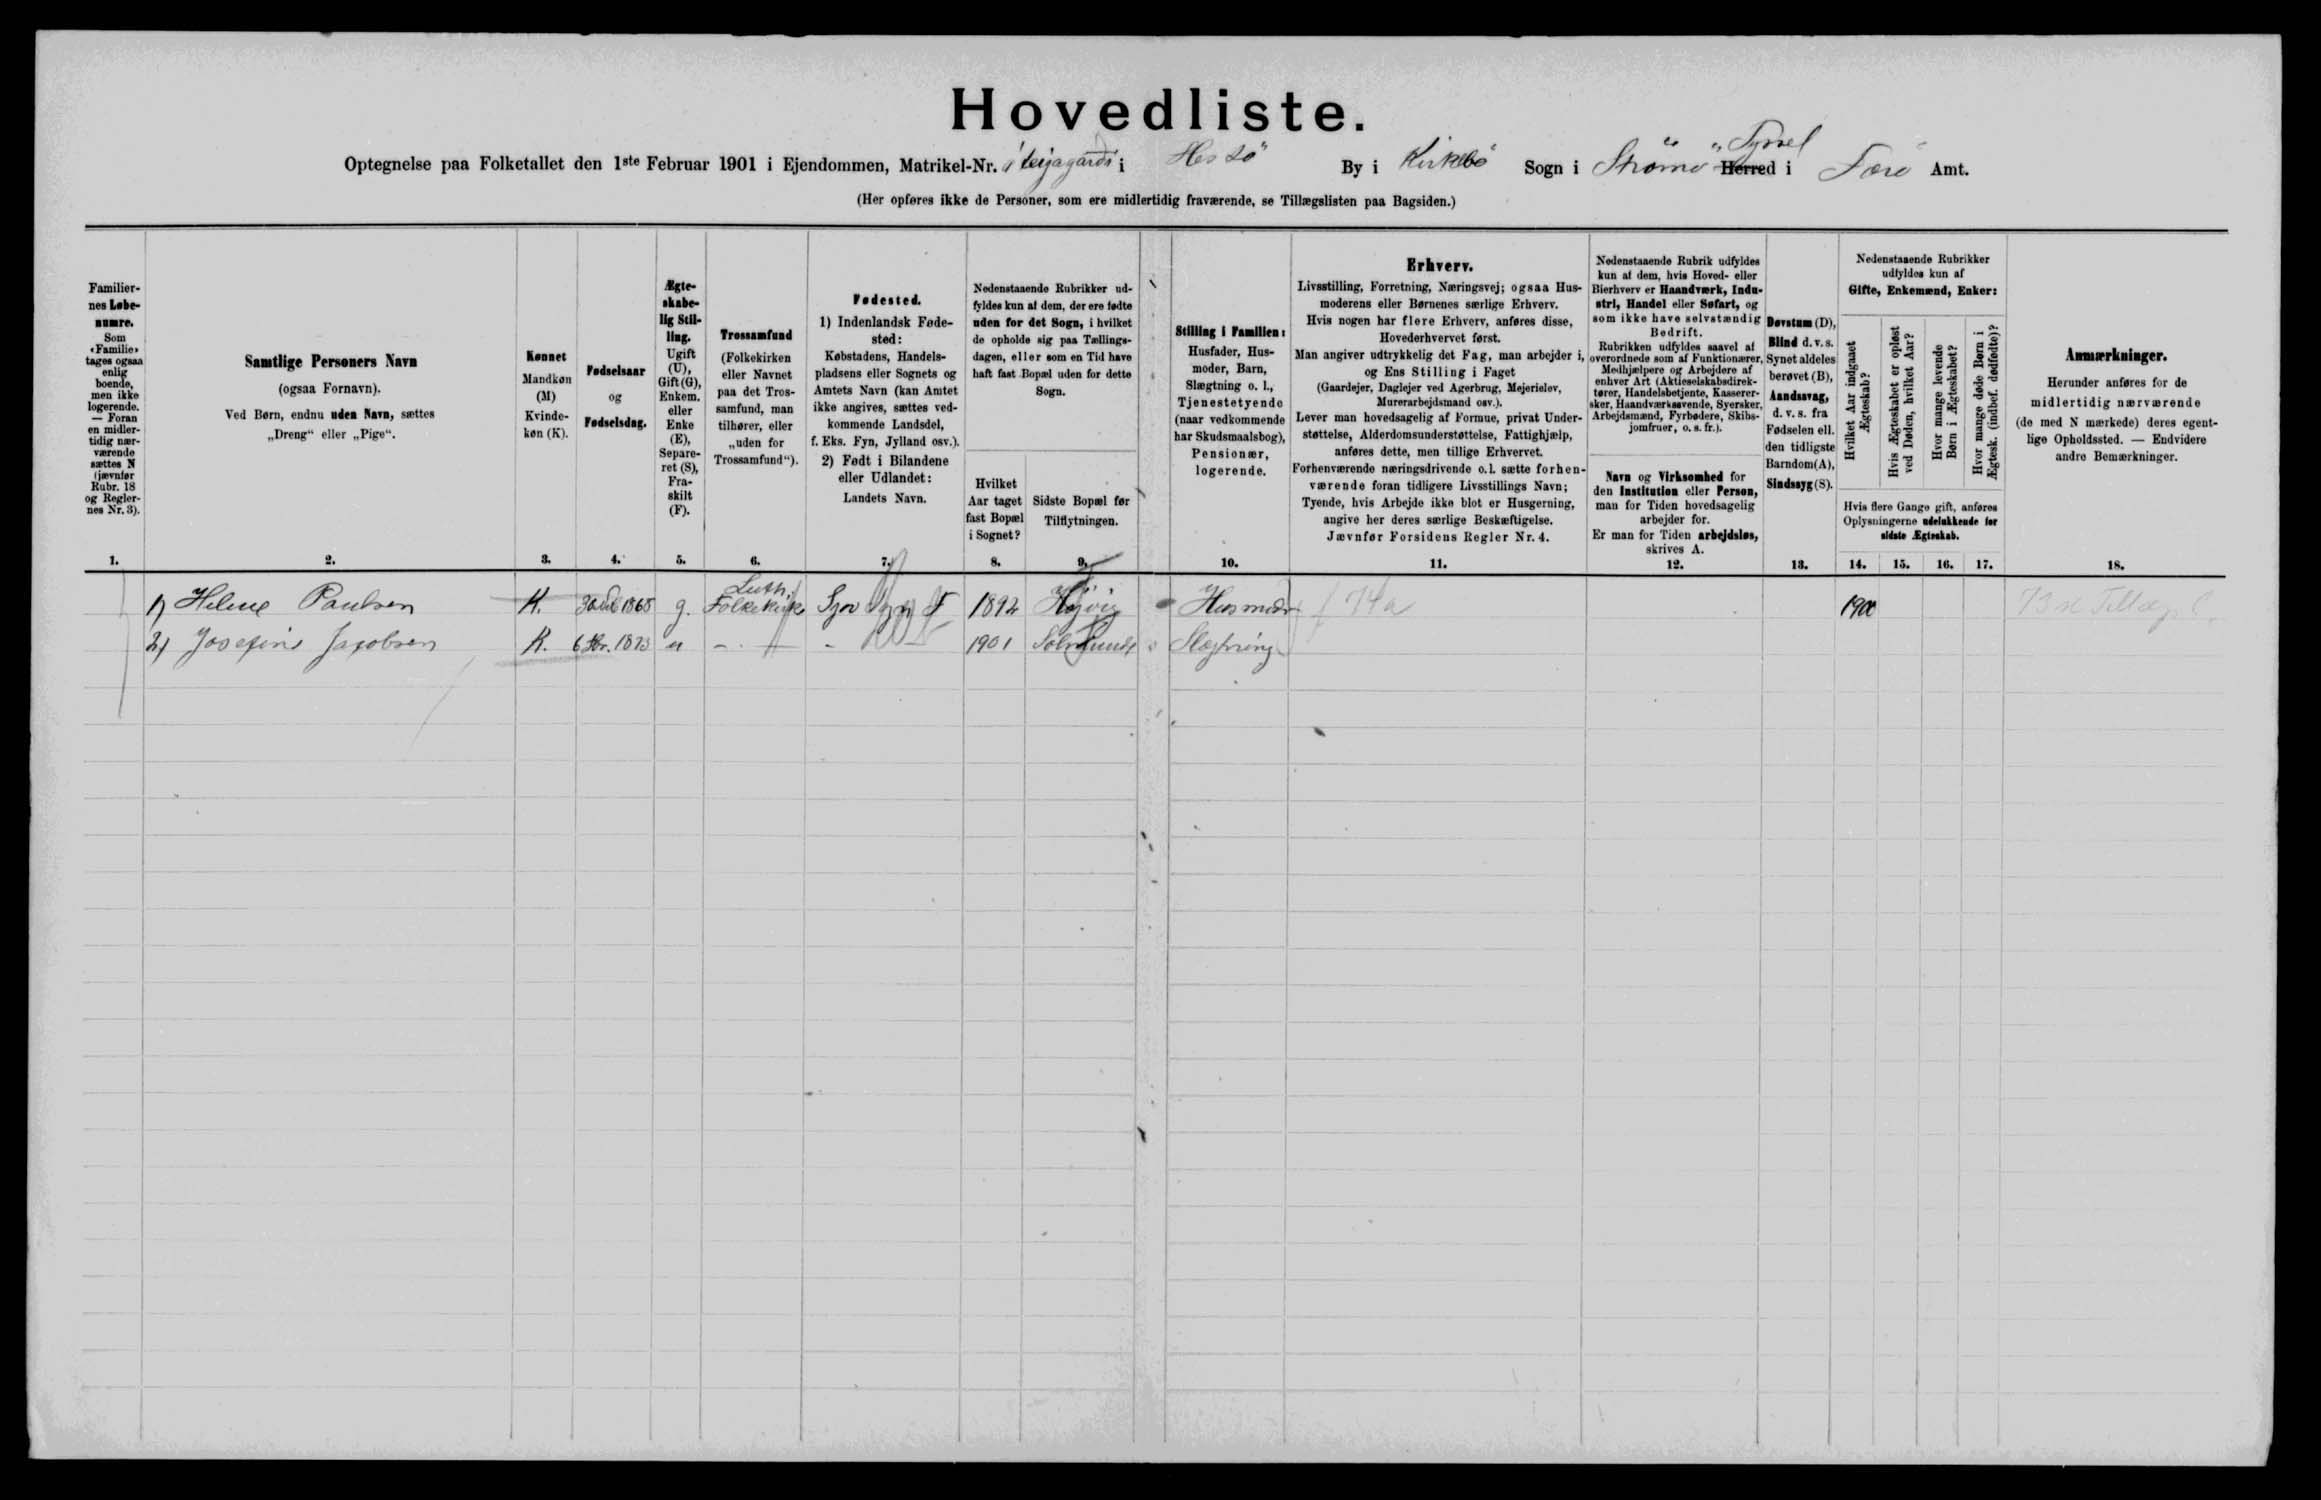 Hovedliste.
Optegnelse paa Folketallet den 1ste Februar 1901 i Ejendommen, Matrikel-Nr. í teigagarði i Hestö By i Kirkebö Sogn i Strömö Herred Syssel i Færö Amt.
(Her opføres ikke de Personer, som ere midlertidig fraværende, se Tillægslisten paa Bagsiden.)
Familier-
nes Løbe-
numre.
Som
«Familie»
tages ogsaa
enlig
boende,
men ikke
logerende.
— Foran
en midler-
tidig nær-
værende
sættes N
(jævnfør
Rubr. 18
og Regler-
nes Nr. 3).
1.
Samtlige Personers Navn
(ogsaa Fornavn).
Ved Børn, endnu uden Navn, sættes
„Dreng“ eller „Pige“.
2.
Kønnet
Mandkøn
(M)
Kvinde-
køn (K).
3.
Fødselsaar
og
Fødselsdag.
4.
Ægte-
skabe-
lig Stil-
ling.
Ugift
(U),
Gift (G),
Enkem.
eller
Enke
(E),
Separe-
ret (S),
Fra-
skilt
(F).
5.
Trossamfund
(Folkekirken
eller Navnet
paa det Tros-
samfund, man
tilhører, eller
„uden for
Trossamfund“).
6.
Fødested.
1) Indenlandsk Føde-
sted:
Købstadens, Handels-
pladsens eller Sognets og
Amtets Navn (kan Amtet
ikke angives, sættes ved-
kommende Landsdel,
f. Eks. Fyn, Jylland osv.).
2) Født i Bilandene
eller Udlandet:
Landets Navn.
7.
Nedenstaaende Rubrikker ud-
fyldes kun af dem, der ere fødte
uden for det Sogn, i hvilket
de opholde sig paa Tællings-
dagen, eller som en Tid have
haft fast Bopæl uden for dette
Sogn.
Hvilket
Aar taget
fast Bopæl
i Sognet?
8.
Sidste Bopæl før
Tilflytningen.
9.
Stilling i Familien:
Husfader, Hus-
moder, Barn,
Slægtning o. l.,
Tjenestetyende
(naar vedkommende
har Skudsmaalsbog),
Pensionær,
logerende.
10.
Erhverv.
Livsstilling, Forretning, Næringsvej; ogsaa Hus-
moderens eller Børnenes særlige Erhverv.
Hvis nogen har flere Erhverv, anføres disse,
Hovederhvervet først.
Man angiver udtrykkelig det Fag, man arbejder i,
og Ens Stilling i Faget
(Gaardejer, Daglejer ved Agerbrug, Mejerielev,
Murerarbejdsmand osv.).
Lever man hovedsagelig af Formue, privat Under-
støttelse, Alderdomsunderstøttelse, Fattighjælp,
anføres dette, men tillige Erhvervet.
Forhenværende næringsdrivende o. l. sætte forhen-
værende foran tidligere Livsstillings Navn;
Tyende, hvis Arbejde ikke blot er Husgerning,
angive her deres særlige Beskæftigelse.
Jævnfør Forsidens Regler Nr. 4.
11.
Nedenstaaende Rubrik udfyldes
kun af dem, hvis Hoved- eller
Bierhverv er Haandværk, Indu-
stri, Handel eller Søfart, og
som ikke have selvstændig
Bedrift.
Rubrikken udfyldes saavel af
overordnede som af Funktionærer,
Medhjælpere og Arbejdere af
enhver Art (Aktieselskabsdirek-
tører, Handelsbetjente, Kasserer-
sker, Haandværkssvende, Syersker,
Arbejdsmænd, Fyrbødere, Skibs-
jomfruer, o. s. fr.).
Navn og Virksomhed for
den Institution eller Person,
man for Tiden hovedsagelig
arbejder for.
Er man for Tiden arbejdsløs,
skrives A.
12.
Døvstum (D),
Blind d. v. s.
Synet aldeles
berøvet (B),
Aandssvag,
d. v. s. fra
Fødselen ell.
den tidligste
Barndom (A),
Sindssyg (S).
13.
Nedenstaaende Rubrikker
udfyldes kun af
Gifte, Enkemænd, Enker:
Hvilket Aar indgaaet
Ægteskab?
Hvis Ægteskabet er opløst
ved Døden, hvilket Aar?
Hvor mange levende
Børn i Ægteskabet?
Hvor mange døde Børn i
Ægtesk. (indbef. dødfødte)?
Hvis flere Gange gift, anføres
Oplysningerne udelukkende for
sidste Ægteskab.
14. 15. 16. 17.
Anmærkninger.
Herunder anføres for de
midlertidig nærværende
(de med N mærkede) deres egent-
lige Opholdssted. — Endvidere
andre Bemærkninger.
18.
1) Helene Paulsen K. 1868 g. Luth. Folkekirke 1892 Husmoder 1900
2) Josefine Jacobsen K. 6 1873 u - - 1901 Slægtning